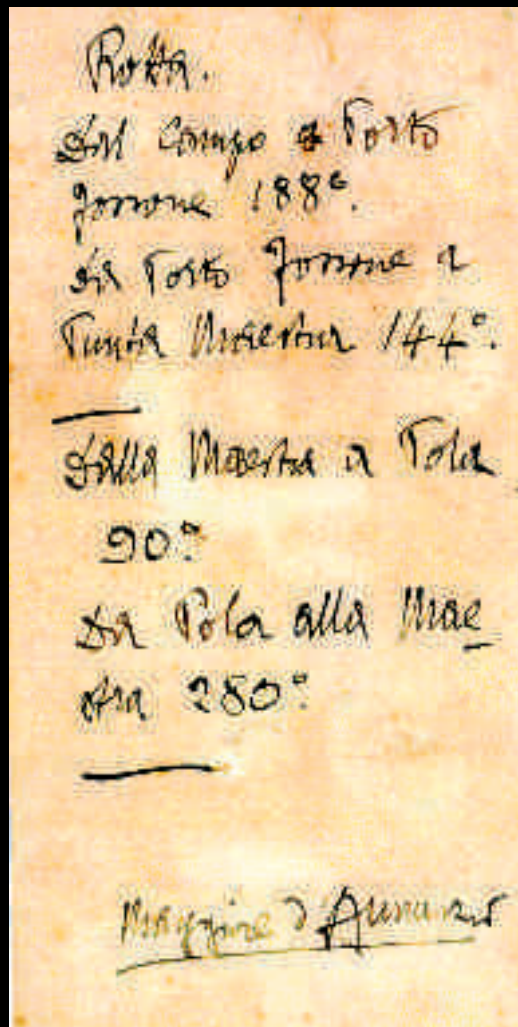 Rotta.
Dal Campo a Porto
Fossone 188°.
Da Porto Fossone a
Punta Maestra 144°.
Dalla Maestra a Pola
90°
Da Pola alla Mae
stra 280°
Maggiore d'Annunzio